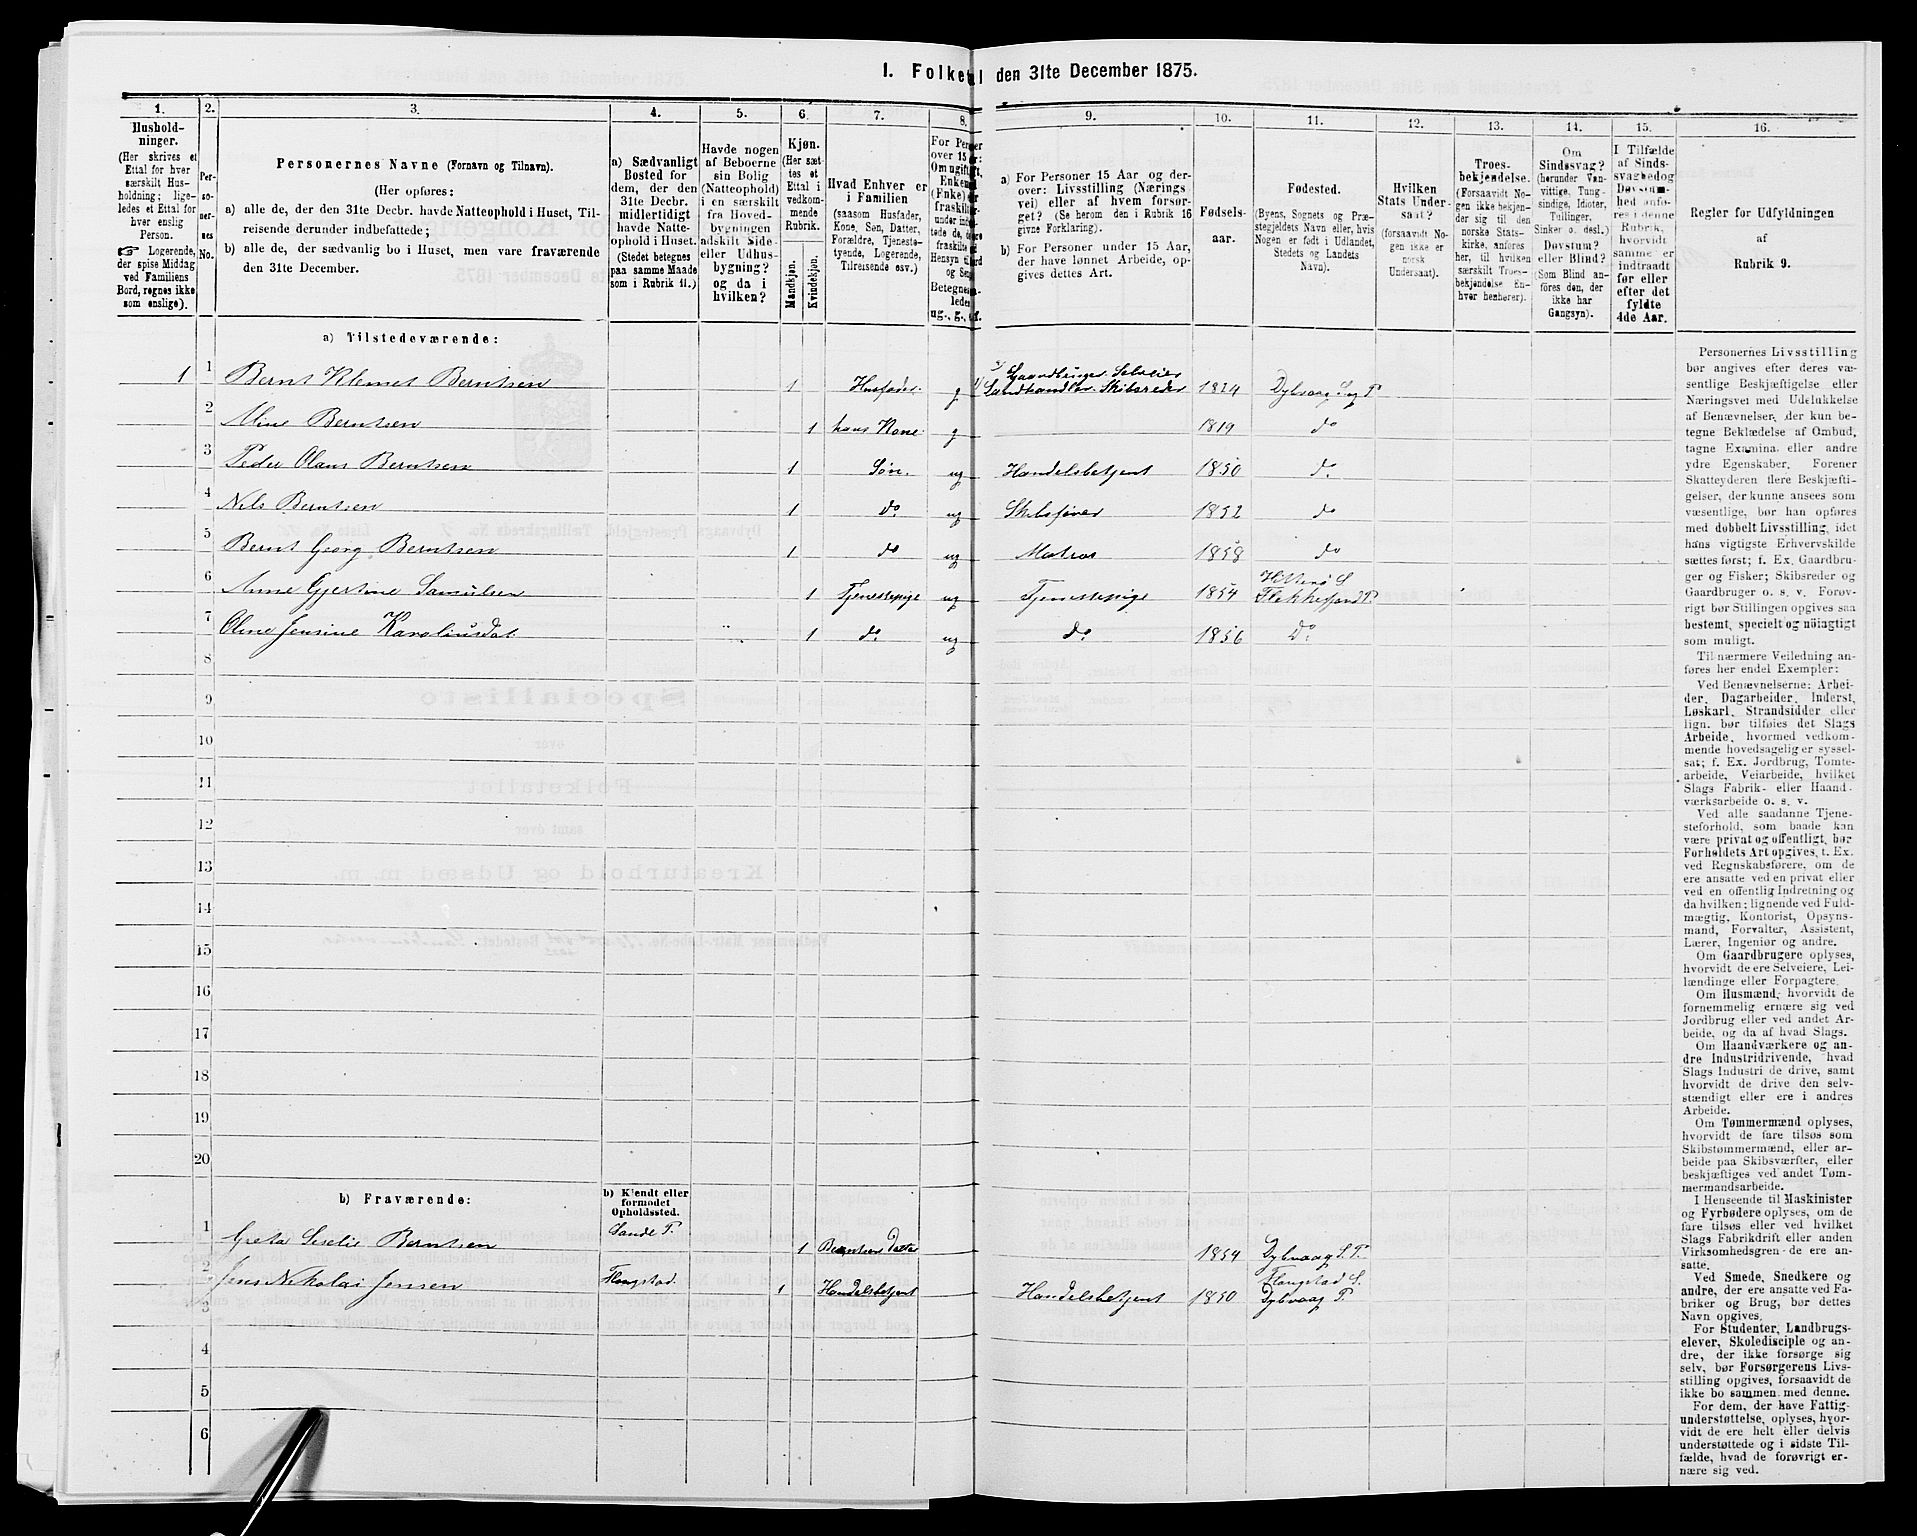 I. Folketal den 31te December 1875.
1. 2. 3. 4. 5. 6. 7. 8. 9. 10. 11. 12. 13. 14. 15. 16.
Hushold-
ninger.
(Her skrives et
Ettal for hver
særskilt Hus-
holdning; lige-
ledes et Ettal for
hver enslig
Person.
☞ Logerende,
der spise Middag
ved Familiens
Bord, regnes ikke
som enslige).
Per-
so-
ner-
nes
No.
Personernes Navne (Fornavn og Tilnavn).
(Her opføres:
a) alle de, der den 31te Decbr. havde Natteophold i Huset, Til-
reisende derunder indbefattede;
b) alle de, der sædvanlig bo i Huset, men vare fraværende
den 31te December.
a) Sædvanligt
Bosted for
dem, der den
31te Decbr.
midlertidigt
havde Natte-
ophold i Huset.
(Stedet betegnes
paa samme Maade
som i Rubrik 11.)
Havde nogen
af Beboerne
sin Bolig
(Natteophold)
i en særskilt
fra Hoved-
bygningen
adskilt Side-
eller Udhus-
bygning?
og da i
hvilken?
Kjøn.
(Her sæt-
tes et
Ettal i
vedkom-
mende
Rubrik.
Mandkjøn.
Kvindekjøn.
Hvad Enhver er
i Familien
(saasom Husfader,
Kone, Søn, Datter,
Forældre, Tjeneste-
tyende, Logerende,
Tilreisende osv.).
For Personer
over 15 Aar:
Om ugift, gift,
ug., g.,
a) For Personer 15 Aar og der-
over: Livsstilling (Nærings-
vei) eller af hvem forsør-
get? (Se herom den i Rubrik 16
givne Forklaring).
b) For Personer under 15 Aar,
der have lønnet Arbeide, op-
gives dettes Art.
Fødsels-
aar.
Fødested.
(Byens, Sognets og Præ-
stegjeldets Navn eller, hvis
Nogen er født i Udlandet,
Stedets og Landets
Navn).
Hvilken
Stats Under-
saat?
(forsaavidt No-
gen ikke er
norsk
Undersaat).
Troes-
bekjendelse.
(Forsaavidt No-
gen ikke bekjen-
der sig til den
norske Stats-
kirke, anføres
her, til hvilken
særskilt Troes-
bekjendelse En-
hver henhører).
Om
Sindssvag?
(herunder Van-
vittige, Tung-
sindige, Idioter,
Tullinger,
Sinker o. desl.)
Døvstum?
eller Blind?
(Som Blind an-
føres den, der
ikke har
Gangsyn).
I Tilfælde
af Sinds-
svaghed og
Døvstum-
hed anfø-
res i denne
Rubrik,
hvorvidt
samme er
indtraadt
før eller
efter det
fyldte
4de Aar.
Regler for Udfyldningen
af
Rubrik 9.
a) Tilstedeværende:
1 1 Bernt Klemet Berntsen 1 Husfader g 1) Gaardbruger Selveier 2) Landhandler Skibsreder 1824 Dybvaag S. og P.
2 Aline Berntsen 1 hans Kone g 1819 do
3 Peder Olaus Berntsen 1 Søn ug Handelsbetjent 1850 do
4 Nels Berntsen 1 do ug Skibsfører 1852 do
5 Bernt Georg Berntsen 1 do ug Matros 1858 do
6 Anne Gjertine Samulsen 1 Tjenestepige ug Tjenestepige 1854 Hitterø S. Flekkefjord P.
7 Oline Jensine Karoliusdat 1 do ug do 1856 Do
8
9
10
11
12
13
14
15
16
17
18
19
20
b) Fraværende:
b) Kjendt eller
formodet
Opholdssted.
1 Greta Seselie Berntsen Sande P. 1 Berntsens Datter 1854 Dybvaag S. P.
2 Jens Nikolai Jensen Flangstad 1 Handelsbetjent Handelsbetjent 1850 Flangstad S. Dybvaag P.
3
4
5
6
Personernes Livsstilling
bør angives efter deres væ-
sentlige Beskjæftigelse eller
Næringsvei med Udelukkelse
af Benævnelser, der kun be-
tegne Beklædelse af Ombud,
tagne Examina, eller andre
ydre Egenskaber. Forener
Skatteyderen flere Beskjæfti-
gelser, der kunne ansees som
væsentlige, bør han opføres
med dobbelt Livsstilling, idet
hans vigtigste Erhvervskilde
sættes først; f. Ex. Gaardbru-
ger og Fisker; Skibsreder og
Gaardbruger o. s. v. Forøv-
rigt bør Stillingen opgives saa
bestemt, specielt og nøiagtigt
som muligt.
Til nærmere Veiledning an-
føres her endel Exempler:
Ved Benævnelserne: Arbei-
der, Dagarbeider, Inderst,
Løskarl, Strandsidder eller
lign. bør tilføies det Slags
Arbeide, hvormed vedkom-
mende hovedsagelig er syssel-
sat; f. Ex. Jordbrug, Tomte-
arbeide, Veiarbeide, hvilket
Slags Fabrik- eller Haand-
værksarbeide o. s. v.
Ved alle saadanne Tjene-
steforhold, som baade kan
være privat og offentligt, bør
Forholdets Art opgives, f. Ex.
ved Regnskabsførere, om de
ere ansatte ved en privat eller
ved en offentlig Indretning og
da hvilken; lignende ved Fuld-
mægtig, Kontorist, Opsyns-
mand, Forvalter, Assistent,
Lærer, Ingeniør og andre.
Om Gaardbrugere oplyses,
hvorvidt de ere Selveiere, Lei-
lændinge eller Forpagtere.
Om Husmænd, hvorvidt de
fornemmelig ernære sig ved
Jordbrug eller ved andet Ar-
beide, og da af hvad Slags.
Om Haandværkere og an-
dre Industridrivende, hvad
Slags Industri de drive, samt
hvorvidt de drive den selv-
stændigt eller ere i andres
Arbeide.
Om Tømmermænd oplyses,
hvorvidt de fare tilsøs som
Skibstømmermænd, eller ar-
beide paa Skibsværfter, eller
beskjæftiges ved andet Tøm-
mermandsarbeide.
I Henseende til Maskinister
og Fyrbødere oplyses, om de
fare tilsøs eller ved hvilket
Slags Fabrikdrift eller anden
Virksomhedsgren de ere an-
satte.
Ved Smede, Snedkere og
andre, der ere ansatte ved Fa-
briker og Brug, bør dettes
Navn opgives.
For Studenter, Landbrugs-
elever, Skoledisciple og an-
dre, der ikke forsørge sig
selv, bør Forsørgerens Livs-
stilling opgives, forsaavidt de
ikke bo sammen med denne.
For dem, der have Fattig-
understøttelse, oplyses, hvor-
vidt de ere helt eller delvis
understøttede og i sidste Til-
fælde, hvad de forøvrigt er-
nære sig ved.